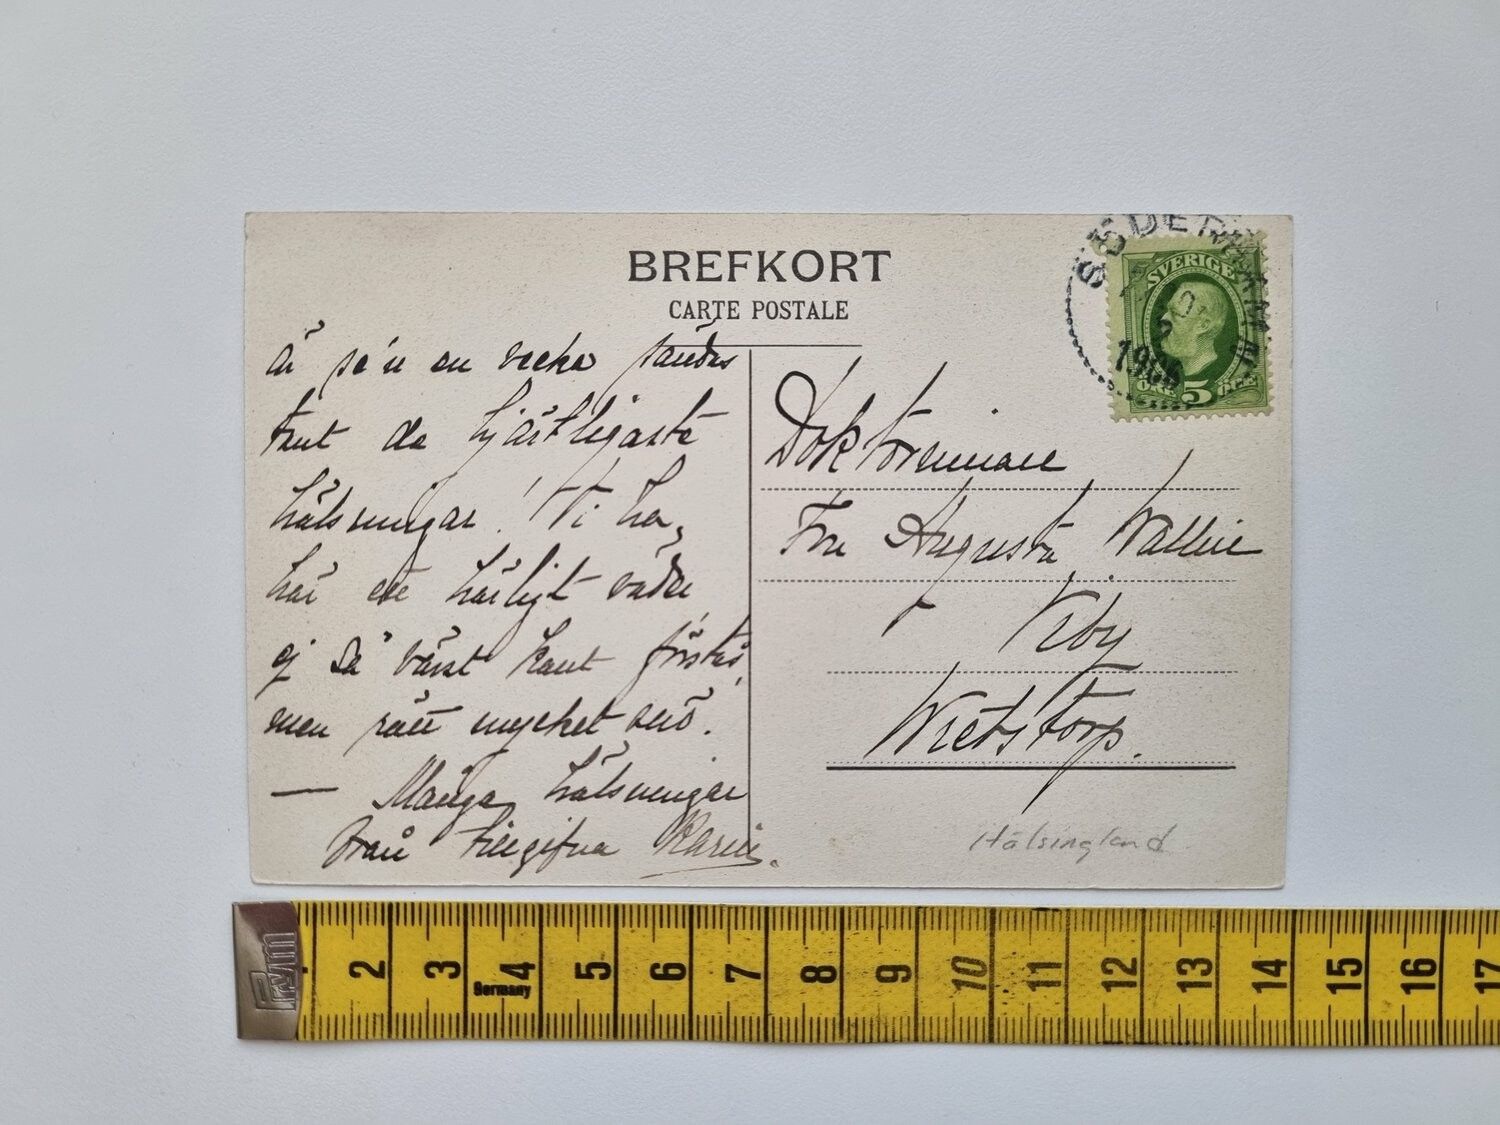 BREFKORT
CARTE POSTALE
en vecka sändas
de hjärtligaste
hälsningar! Vi ha,
här ett härligt väder,
ej så värst kant förstås,
men rätt mycket snö.
— Många hälsningar
från tillgifna Karin.
Doktorinnan
Fru Augusta Wallin
Viby
Wretstorp.
Hälsingland
SÖDERHAMN
1906
SVERIGE
ÖRE 5 ÖRE
Prym
2 3 4 5 6 7 8 9 10 11 12 13 14 15 16 17
Germany